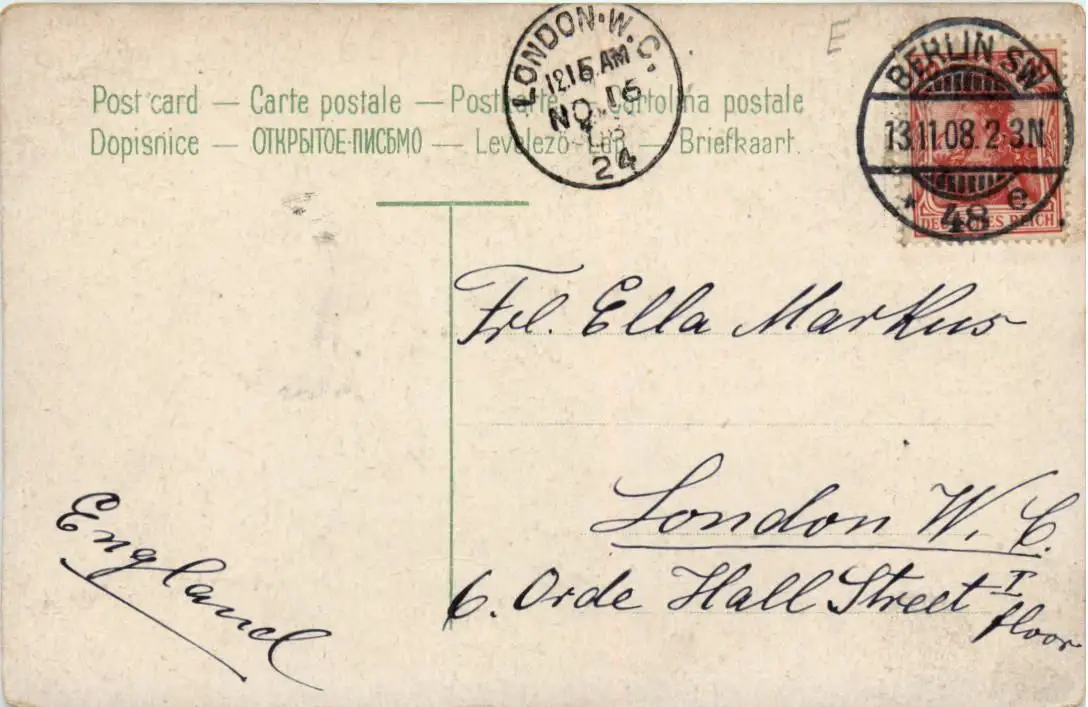 E
LONDON.W.C.
12.15 AM
NO 15
08
24
BERLIN SW
13.11.08.2-3N.
* 48 e
DEUTSCHES REICH
Post card — Carte postale — Postkarte — Cartolina postale
Dopisnice — ОТКРЫТОЕ ПИСЬМО — Levelező-Lap — Briefkaart.
Frl. Ella Markus
London W. C.
6. Orde Hall Street I
floor
England